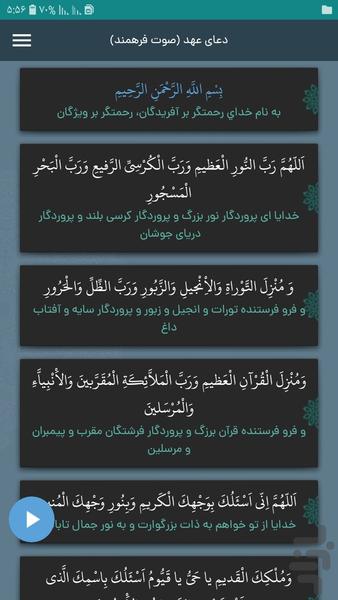 ۵:۵۶ ۷۰%
دعای عهد (صوت فرهمند)
بِسْمِ اللَّهِ الرَّحْمَنِ الرَّحِيمِ
به نام خداي رحمتگر بر آفريدگان، رحمتگر بر ويژگان
اَللَّهُمَّ رَبَّ النُّورِ الْعَظيمِ وَرَبَّ الْكُرْسِىِّ الرَّفيعِ وَرَبَّ الْبَحْرِ
الْمَسْجُورِ
خدایا ای پروردگار نور بزرگ و پروردگار کرسی بلند و پروردگار
دریای جوشان
وَ مُنْزِلَ التَّوْراةِ وَالْاِنْجيلِ وَالزَّبُورِ وَرَبَّ الظِّلِّ وَالْحَرُورِ
و فرو فرستنده تورات و انجیل و زبور و پروردگار سایه و آفتاب
داغ
وَمُنْزِلَ الْقُرْآنِ الْعَظيمِ وَرَبَّ الْمَلاَّئِكَةِ الْمُقَرَّبينَ وَالأَْنْبِياَّءِ
وَالْمُرْسَلينَ
و فرو فرستنده قرآن برزگ و پروردگار فرشتگان مقرب و پیمبران
و مرسلین
اَللَّهُمَّ اِنّى اَسْئَلُكَ بِوَجْهِكَ الْكَريمِ وَبِنُورِ وَجْهِكَ
خدایا از تو خواهم به ذات بزرگوارت و به نور جمال
وَمُلْكِكَ الْقَديمِ يا حَىُّ يا قَيُّومُ اَسْئَلُكَ بِاسْمِكَ الَّذى